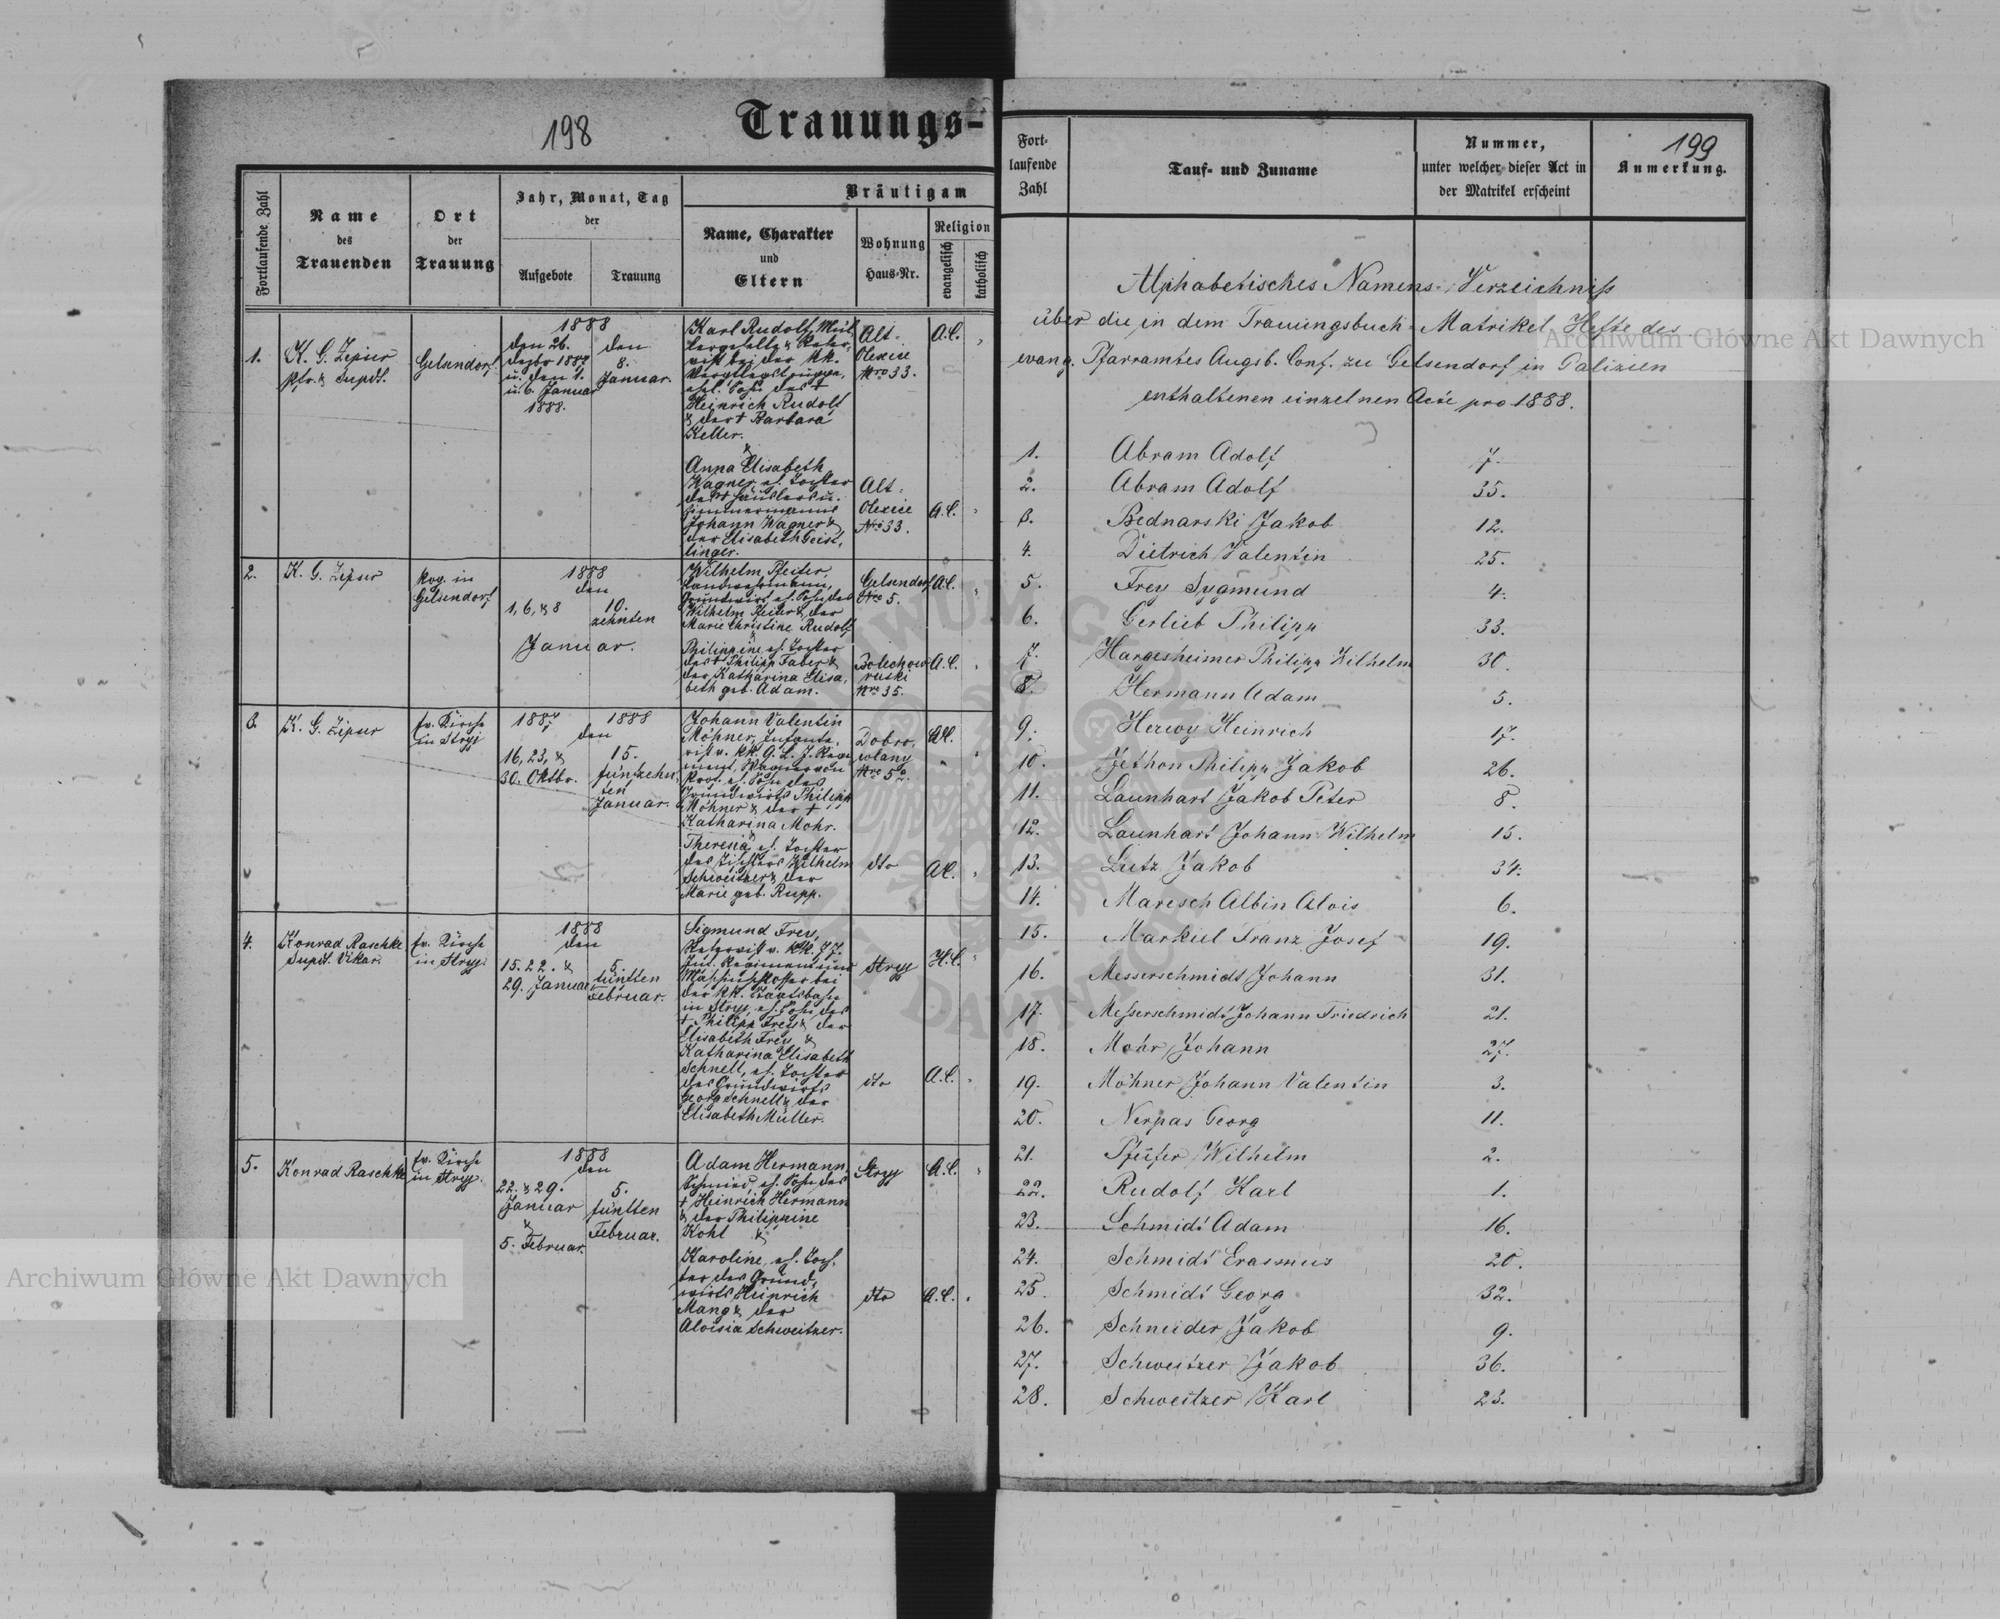 198
Trauungs-
Fortlaufende Zahl
Name
des
Trauenden
Ort
der
Trauung
Jahr, Monat, Tag
der
Aufgebote
Trauung
Bräutigam
Name, Charakter
und
Eltern
Wohnung
Haus-Nr.
Religion
evangelisch
katholisch
1.
K. G. Zipser
Pfr. & Supdt.
Gelsendorf
1888
den 26.
Dezbr 1887
u. den 1.
u. 6. Januar
1888.
den
8.
Januar.
Karl Rudolf, Mül-
lergeselle & Reser-
vist bei der kk.
Verpflegstruppe,
ehl. Sohn des †
Heinrich Rudolf
& der † Barbara
Keller.
&
Anna Elisabeth
Wagner, eh. Tochter
des † Häuslers u.
Zimmermanns
Johann Wagner &
der Elisabeth Geist-
linger.
Alt-
Olexice
Nro 33.
A.C.
Alt-
Olexice
Nro 33.
A.C.
2.
K. G. Zipser
Evg. in
Gelsendorf
1888
den
1, 6, & 8
10.
zehnten
Januar.
Wilhelm Pfeifer,
Landwehrmann,
Grundwirt, eh. Sohn des
Wilhelm Pfeifer & der
Marie Christine Rudolf
Philippine, eh. Tochter
des † Philipp Faber &
der Katharina Elisa-
beth geb. Adam.
Gelsendorf
Nro 5.
A.C.
Bolechow
ruski
Nro 35.
A.C.
3.
K. G. Zipser
Ev. Kirche
in Stryj
1887
1888
den
16, 23, &
30. Oktbr.
15.
fünfzehn-
ten
Januar.
Johann Valentin
Möhner, Infante-
rist
Grundwirts Philipp
Möhner & der †
Katharina Mohr.
&
Theresia, eh. Tochter
des Tischlers Wilhelm
Schweitzer & der
Marie geb. Rupp.
Dobro-
wlany
Nro 5
A.C.
dto
A.C.
4.
Konrad Raschke
Supdt. Vikar.
Ev. Kirche
in Stryj.
1888
den
15. 22. &
29. Januar
5.
fünften
Februar.
Sigmund Frey,
Reservist v. kk. 77.
Inf. Regiment und
Maschinschlosser bei
der kk. Staatsbahn
in Stryj, eh. Sohn des
† Philipp Frey & der
Elisabeth Frey &
Katharina Elisabeth
Schnell, eh. Tochter
des Grundwirts
Georg Schnell & der
Elisabeth Müller.
Stryj
H.C.
dto
A.C.
5.
Konrad Raschke
Ev. Kirche
in Stryj.
1888
den
22. & 29.
Januar
&
5. Februar.
5.
fünften
Februar.
Adam Hermann,
Schmied, eh. Sohn des
† Heinrich Hermann
& der Philippine
Kohl &
Karoline, eh. Toch-
ter des Grund-
wirts Heinrich
Mang & der
Aloisia Schweitzer.
Stryj
A.C.
dto
A.C.
199
Fort-
laufende
Zahl
Tauf- und Zuname
Nummer,
unter welcher dieser Act in
der Matrikel erscheint
Anmerkung.
Alphabetisches Namens-Verzeichniss
über die in dem Trauungsbuch-Matrikel Hefte des
evang. Pfarramtes Augsb. Conf. zu Gelsendorf in Galizien
enthaltenen einzelnen Acte pro 1888.
1. Abram Adolf 7.
2. Abram Adolf 35.
3. Bednarski Jakob 12.
4. Dietrich Valentin 25.
5. Frey Sygmund 4.
6. Gerlieb Philipp 33.
7. Hargesheimer Philipp Wilhelm 30.
8. Hermann Adam 5.
9. Herwy Heinrich 17.
10. Jethon Philipp Jakob 26.
11. Launhart Jakob Peter 8.
12. Launhart Johann Wilhelm 15.
13. Lutz Jakob 34.
14. Maresch Albin Alois 6.
15. Markiel Franz Josef 19.
16. Messerschmidt Johann 31.
17. Messerschmidt Johann Friedrich 21.
18. Mohr Johann 27.
19. Möhner Johann Valentin 3.
20. Nerpas Georg 11.
21. Pfeifer Wilhelm 2.
22. Rudolf Karl 1.
23. Schmidt Adam 16.
24. Schmidt Erasmus 20.
25. Schmidt Georg 32.
26. Schneider Jakob 9.
27. Schweitzer Jakob 36.
28. Schweitzer Karl 23.
Archiwum Główne Akt Dawnych
Archiwum Główne Akt Dawnych